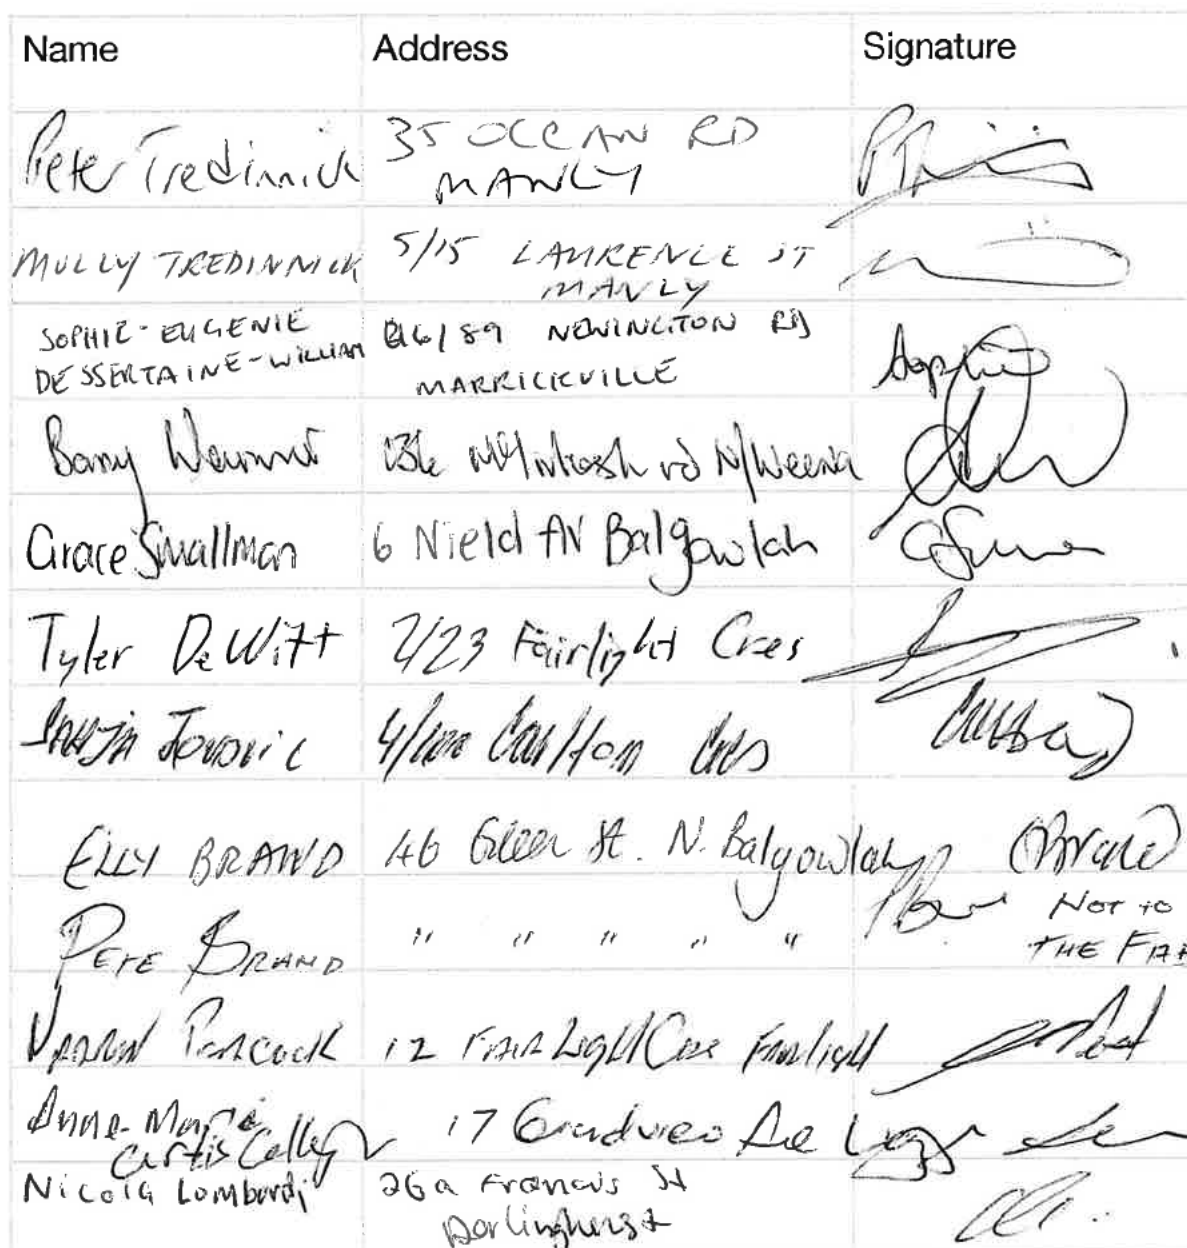 Name Address Signature
Peter Tredinnick 35 OCEAN RD
MANLY
MOLLY TREDINNICK 5/15 LAURENCE ST
MANLY
SOPHIE-EUGENIE 16/89 NEWINGTON RD
DESSERTAINE-WILLIAM MARRICKVILLE Sophie
Barry 136 McIntosh rd N/Weena
Grace Smallman 6 Nield AV Balgowlah
Tyler DeWitt 2/23 Fairlight Cres
SANJA JOVOVIC 4/ Carlton Cres
ELLY BRAND 46 St. N. Balgowlah EBrand
PETE BRAND " " " " " NOT TO
THE FAR
PEACOCK 12 FAIRLight Cres Fairlight
Anne-Marie 17 Ave
Curtis
Nicola Lombardi 26a Francis St
Darlinghurst